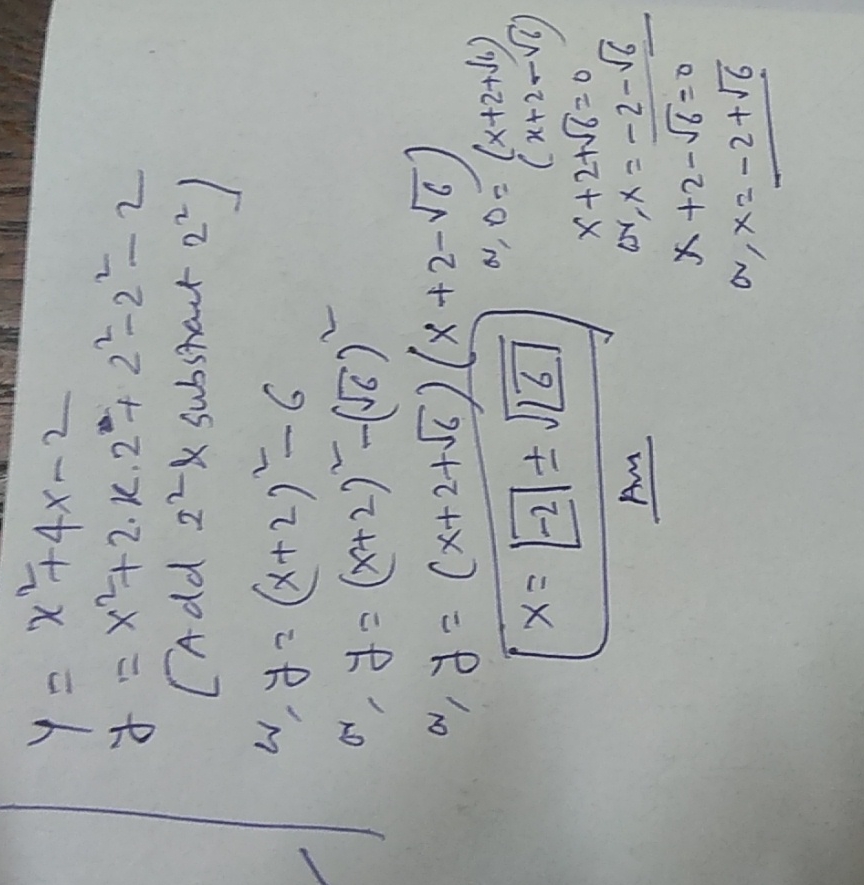 y = x²+4x-2
y = x²+2.x.2+2²-2²-2
(Add 2² & substract 2²)
or, y = (x+2)²-6
or, y = (x+2)²-(√6)²
or, y = (x+2+√6)(x+2-√6)
or, 0 = (x+2+√6)
(x+2-√6)
x+2+√6=0
or, x = -2-√6
x+2-√6=0
or, x = -2+√6
x = -2 ± √6
Ans